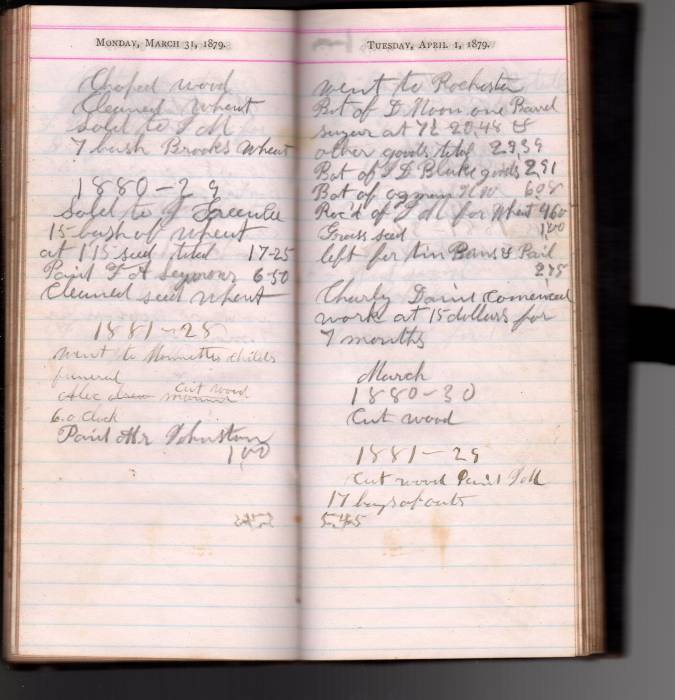 MONDAY, MARCH 31, 1879.
Choped wood
Cleaned wheat
Sold to J M
7 bush Brooks Wheat
1880-29
Sold to J
15 bush of wheat
at 115 seed total 17-25
Paid F A Seymour 6-50
Cleaned seed wheat
1881-28
went to childs
funeral
Alec Cut wood
6.0 Clock
Paid Mr Johnston
1,00
TUESDAY, APRIL 1, 1879.
went to Rochester
Bot of D Moon one Barel
sugar at 7½ 20,48 &
other goods total 29,39
Bot of J D Blake goods 2,91
Bot of 608
Rec'd of J M for Wheat 460
Grass seed 1,00
left for tin Pans & Pail
275
Charly Daint Comenced
work at 15 dollars for
7 months
March
1880-30
Cut wood
1881-29
Cut wood Paid J M
17 bags of oats
5,45